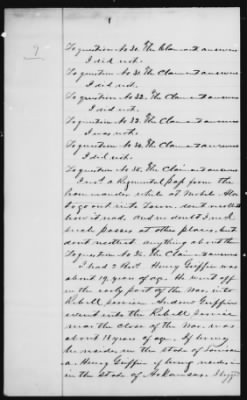 7
To question No 30. The Claimant answers
I did not.
To question No 31. The Claimant answers
I did not.
To question No 32. The Claimant answers
I did not.
To question No 33. The Claimant answers
I was not.
To question No 34. The Claimant answers
I did not.
To question No 35. The Claimant answers
I recd a Regimental pass from the
Commander while at Mobile Ala
to go out into Town. dont recollect
how it read. And no doubt I recd
such passes at other places, but
dont recollect anything about them
To question No 36. The Claimant answers
I had 2 Henry Griffin was
about 19 years of age. He went off
in the early part of the War. into
Rebell Service. Andrew Griffin
went into the Rebell Service
near the close of the War. was
about 18 years of age. H being
he resides in the state of
Henry Griffin if living resides
in the State of Arkansas. I